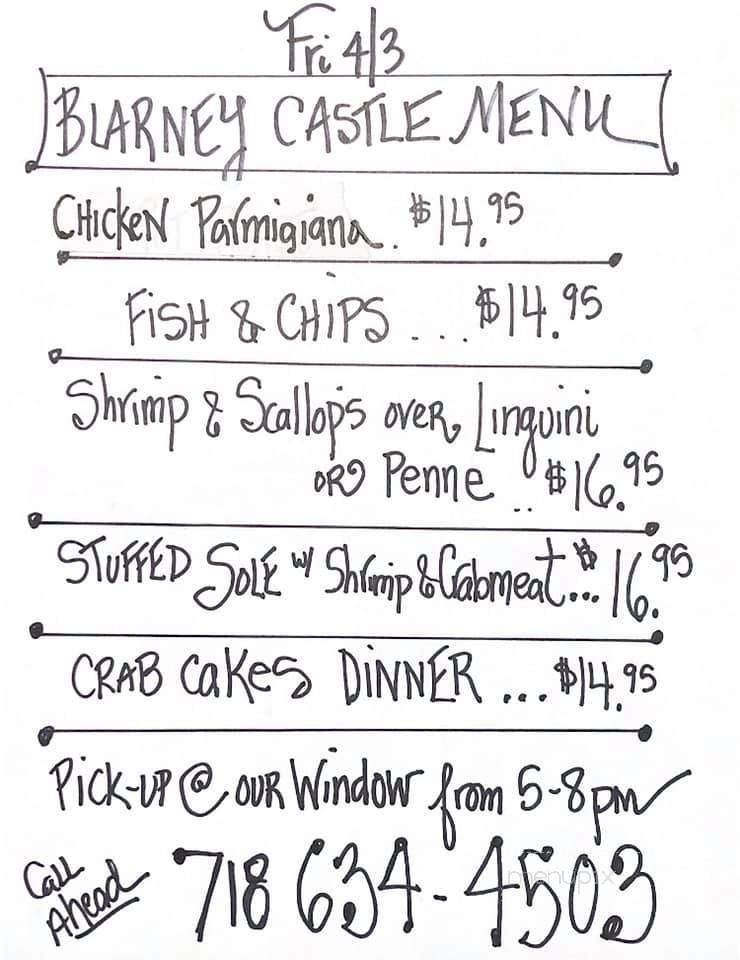 Fri 4/3
BLARNEY CASTLE MENU
CHICKEN Parmigiana. $14.95
FISH & CHIPS ... $14.95
Shrimp & Scallops OVER Linguini
OR Penne .. $16.95
STUFFED SOLE w/ Shrimp & Crabmeat... $16.95
CRAB CaKes DiNNER ... $14.95
Pick-UP @ OUR Window from 5-8pm
Call
Ahead
718 634-4503
menupix